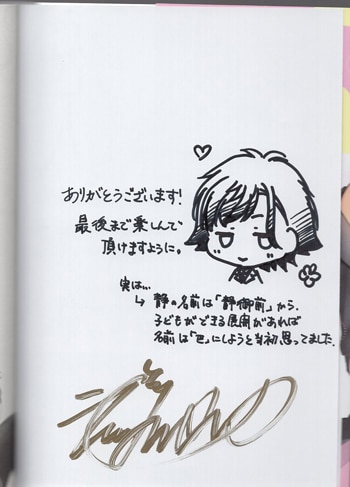 ありがとうございます!
最後まで楽しんで
頂けますように。
実は…
↳ 静の名前は「静御前」から。
子どもができる展開があれば
名前は「巴」にしようと当初思ってました。